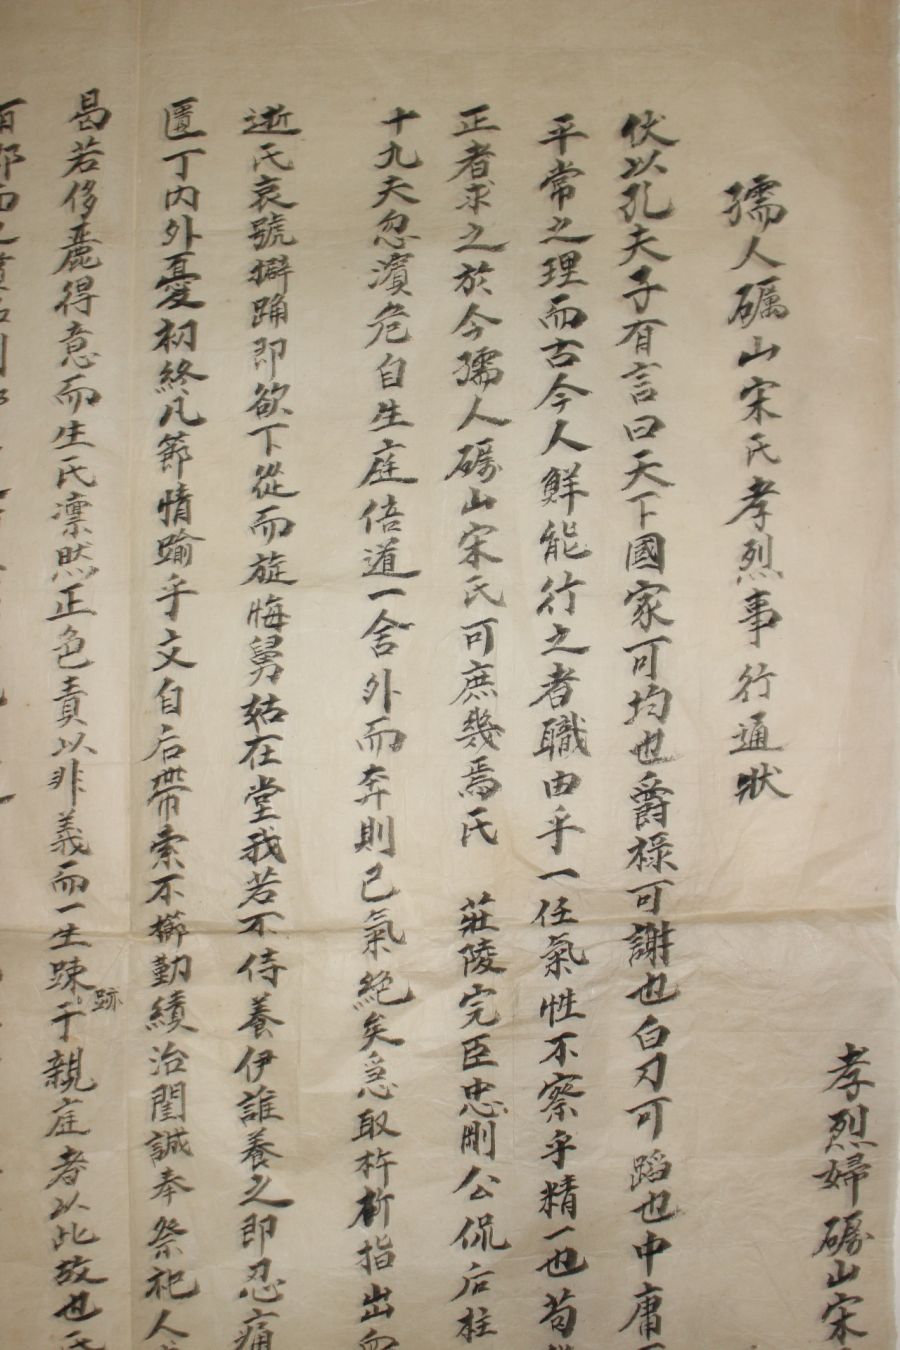 孝烈婦礪山宋
孺人礪山宋氏孝烈事行通狀
伏以孔夫子有言曰天下國家可均也爵祿可謝也白刃可蹈也中庸
平常之理而古今人鮮能行之者職由乎一任氣性不察乎精一也苟
正者求之於今孺人礪山宋氏可庶幾焉氏 莊陵完臣忠剛公侃后柱
十九夫忽濱危自生庭倍道一舍外而奔則已氣絶矣急取杵斫指出血
逝氏哀號擗踊即欲下從而旋悔舅姑在堂我若不侍養伊誰養之即忍痛
匱丁內外憂初終凡節情踰乎文自后帶索不櫛勤績治閨誠奉祭祀人
曷若侈麗得意而生氏凜然正色責以非義而一生踈跡于親庭者以此故也氏